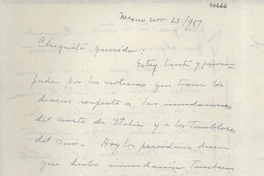 10666
Mexico, nov. 21/951
Chiquita querida:
Estoy triste y preocu-
pada por las noticias que traen los
diarios respecto a las inundaciones
del norte de Italia y a los temblores
del sur. Hoy los periódicos dicen
que hubo inundación también